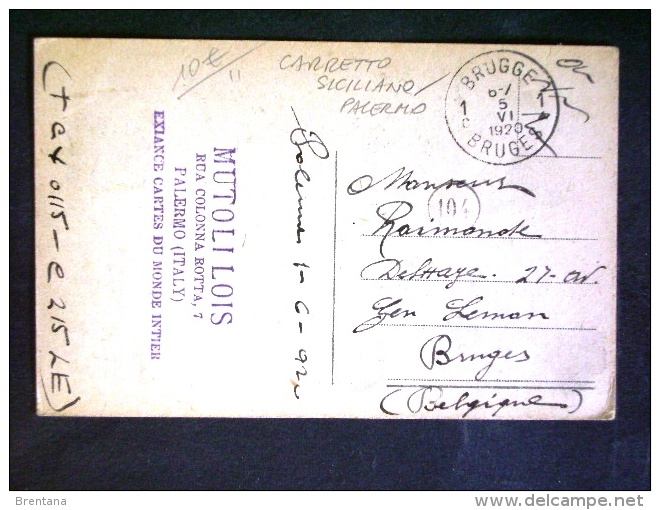 10€
"
CARRETTO
SICILIANO/
PALERMO
BRUGGE
1 1
6-7
5
VI
1920
BRUGES
MUTOLI LOIS
RUA COLONNA ROTTA, 7
PALERMO (ITALY)
EXIANCE CARTES DU MONDE INTIER
Palermo 1-6-920
104
Monsieur
Raimonde
Delhaye. 27-av.
Gen Leman
Bruges
(Belgique)
Brentana
delcampe.net